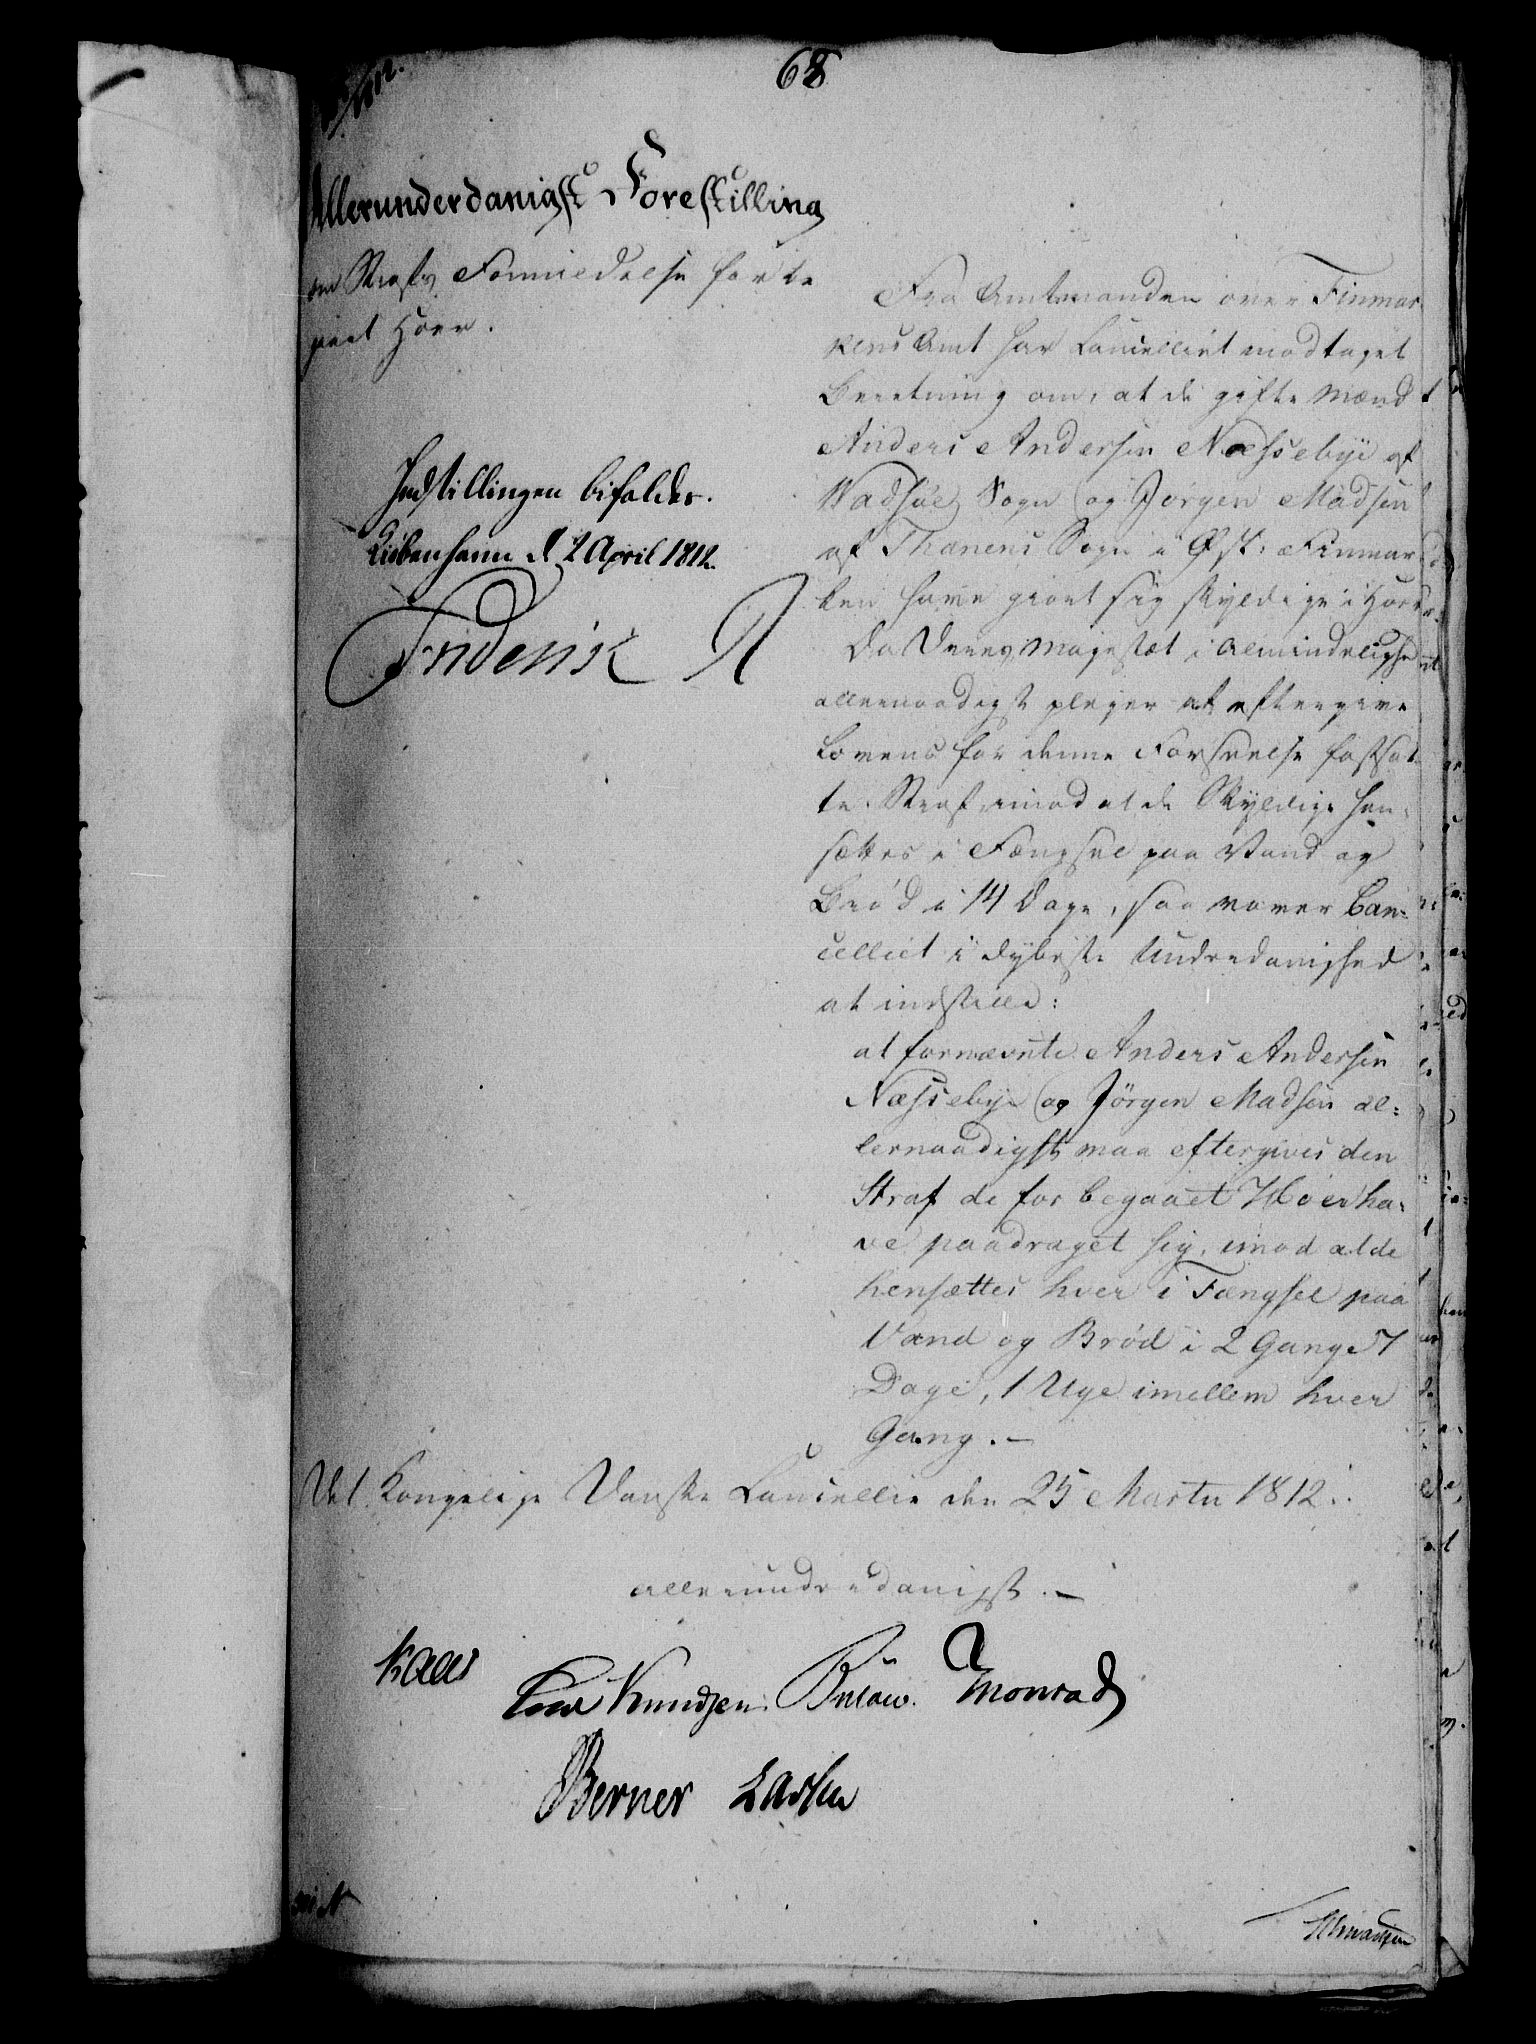 68
Allerunderdanigst Forestilling
om Strafs Formildelse for be
gaaet Hoer.
Indstillingen bifaldes.
Kiöbenhavn d 2 April 1812.
Friderik R
Fra Amtmanden over Finmar
kens Amt har Cancelliet modtaget
Beretning om, at de gifte Mænd
Anders Andersen Næssebye af
Wadsöe Sogn og Jörgen Madsen
af Thanens Sogn i Øst-Finmar
ken have giort sig skyldige i Hoer
Da Deres Majestæt i Almindelighed
allernaadigst pleyer at eftergive
Lovens for denne Forseelse fastsat
te Straf, imod at de Skyldige hen-
sættes i Fængsel paa Vand og
Bröd i 14 Dage, saa vover Can-
celliet i dybeste Underdanighed
at indstille:
at fornævnte Anders Andersen
Næssebye og Jörgen Madsen al-
lernaadigst maa eftergives den
Straf de for begaaet Hoer ha-
ve paadraget sig, imod at de
hensættes hver i Fængsel paa
Vand og Bröd i 2 Gange 7
Dage, 1 Uge imellem hver
Gang. —
Det Kongelige Danske Cancellie den 25 Martii 1812.
allerunderdanigst. —
Kaas
Cold Knudsen. Bülow. Monrad
Berner Lassen